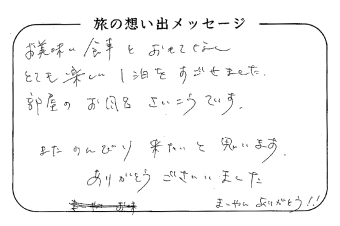 旅の想い出メッセージ
お美味い食事とおもてなし
とても楽しい1泊をすごせました。
部屋のお風呂さいこうです。
またのんびり来たいと思います。
ありがとうございました
まーやん ありがとう!!